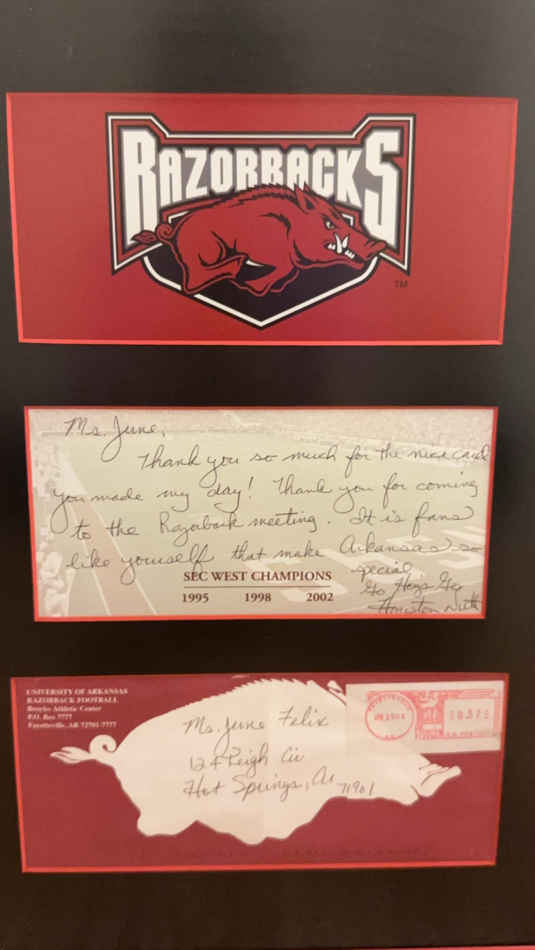 RAZORBACKS
TM
Ms. June,
Thank you so much for the nice card
you made my day! Thank you for coming
to the Razorback meeting. It is fans
like yourself that make Arkansas so
special.
Go Hogs Go
Houston Nutt
SEC WEST CHAMPIONS
1995 1998 2002
UNIVERSITY OF ARKANSAS
RAZORBACK FOOTBALL
Broyles Athletic Center
P.O. Box 7777
Fayetteville, AR 72702-7777
Ms. June Felix
124 Leigh Cir
Hot Springs, Ar 71901